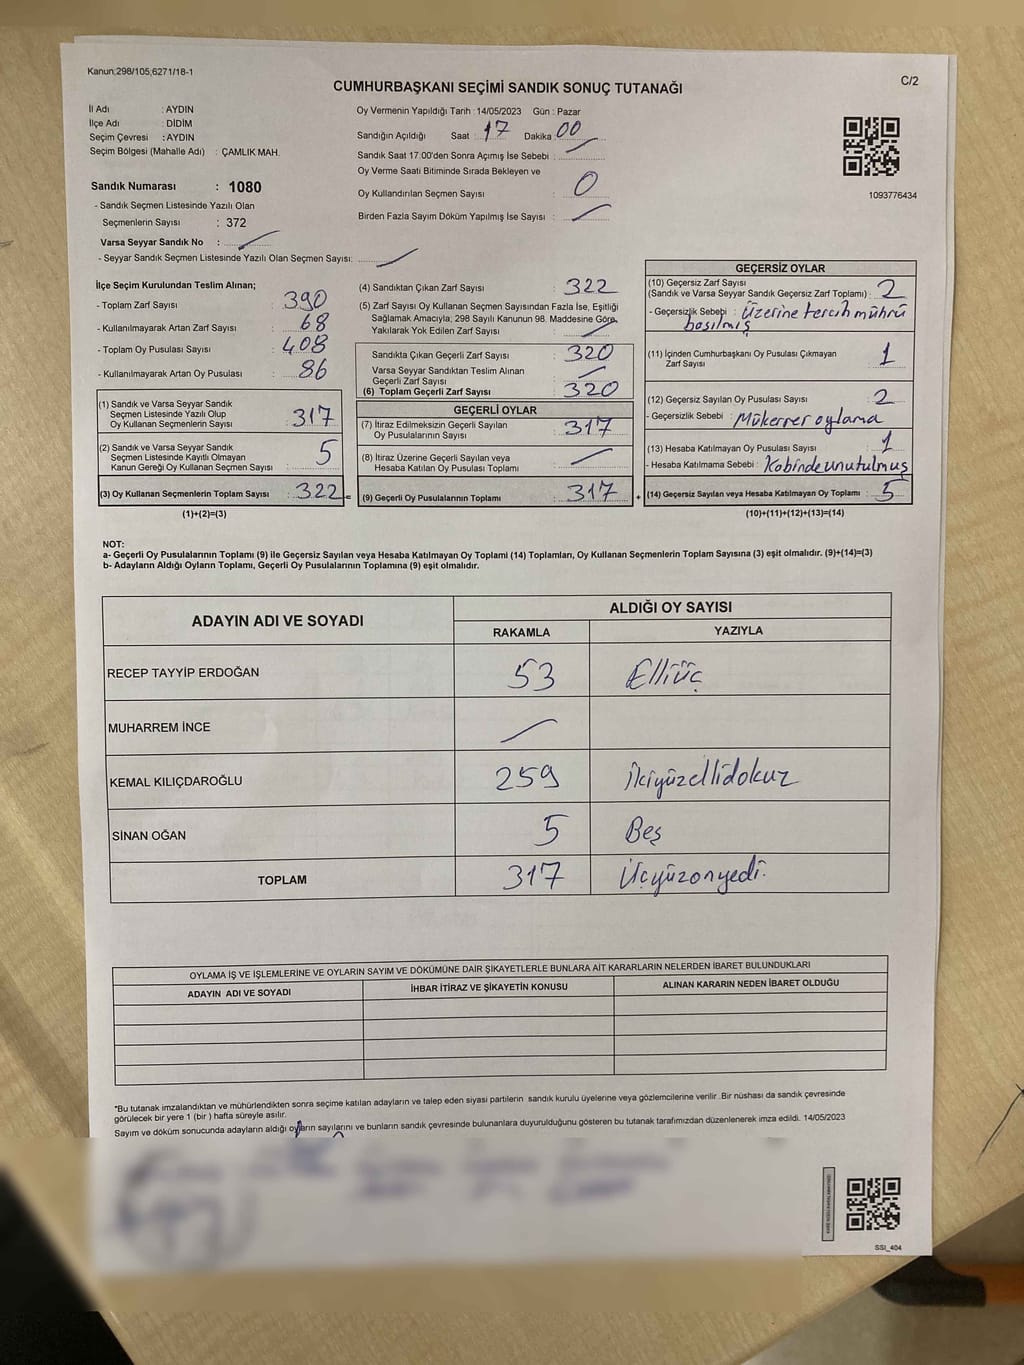 Kanun;298/105;6271/18-1
C/2
CUMHURBAŞKANI SEÇİMİ SANDIK SONUÇ TUTANAĞI
İl Adı : AYDIN
İlçe Adı : DİDİM
Seçim Çevresi : AYDIN
Seçim Bölgesi (Mahalle Adı) : ÇAMLIK MAH.
Sandık Numarası : 1080
- Sandık Seçmen Listesinde Yazılı Olan
Seçmenlerin Sayısı : 372
Varsa Seyyar Sandık No :
- Seyyar Sandık Seçmen Listesinde Yazılı Olan Seçmen Sayısı:
Oy Vermenin Yapıldığı Tarih : 14/05/2023 Gün : Pazar
Sandığın Açıldığı Saat : 17 Dakika 00
Sandık Saat 17.00'den Sonra Açımış İse Sebebi :
Oy Verme Saati Bitiminde Sırada Bekleyen ve
Oy Kullandırılan Seçmen Sayısı : 0
Birden Fazla Sayım Döküm Yapılmış İse Sayısı :
1093776434
İlçe Seçim Kurulundan Teslim Alınan;
- Toplam Zarf Sayısı : 390
- Kullanılmayarak Artan Zarf Sayısı : 68
- Toplam Oy Pusulası Sayısı : 408
- Kullanılmayarak Artan Oy Pusulası : 86
(1) Sandık ve Varsa Seyyar Sandık
Seçmen Listesinde Yazılı Olup
Oy Kullanan Seçmenlerin Sayısı : 317
(2) Sandık ve Varsa Seyyar Sandık
Seçmen Listesinde Kayıtlı Olmayan
Kanun Gereği Oy Kullanan Seçmen Sayısı : 5
(3) Oy Kullanan Seçmenlerin Toplam Sayısı : 322 =
(1)+(2)=(3)
(4) Sandıktan Çıkan Zarf Sayısı : 322
(5) Zarf Sayısı Oy Kullanan Seçmen Sayısından Fazla İse, Eşitliği
Sağlamak Amacıyla; 298 Sayılı Kanunun 98. Maddesine Göre,
Yakılarak Yok Edilen Zarf Sayısı :
Sandıkta Çıkan Geçerli Zarf Sayısı : 320
Varsa Seyyar Sandıktan Teslim Alınan
Geçerli Zarf Sayısı :
(6) Toplam Geçerli Zarf Sayısı : 320
GEÇERLİ OYLAR
(7) İtiraz Edilmeksizin Geçerli Sayılan
Oy Pusulalarının Sayısı : 317
(8) İtiraz Üzerine Geçerli Sayılan veya
Hesaba Katılan Oy Pusulası Toplamı :
(9) Geçerli Oy Pusulalarının Toplamı : 317 +
GEÇERSİZ OYLAR
(10) Geçersiz Zarf Sayısı
(Sandık ve Varsa Seyyar Sandık Geçersiz Zarf Toplamı) : 2
- Geçersizlik Sebebi : Üzerine tercih mührü
basılmış
(11) İçinden Cumhurbaşkanı Oy Pusulası Çıkmayan
Zarf Sayısı : 1
(12) Geçersiz Sayılan Oy Pusulası Sayısı : 2
- Geçersizlik Sebebi : Mükerrer oylama
(13) Hesaba Katılmayan Oy Pusulası Sayısı : 1
- Hesaba Katılmama Sebebi : Kabinde unutulmuş
(14) Geçersiz Sayılan veya Hesaba Katılmayan Oy Toplamı : 5
(10)+(11)+(12)+(13)=(14)
NOT:
a- Geçerli Oy Pusulalarının Toplamı (9) ile Geçersiz Sayılan veya Hesaba Katılmayan Oy Toplami (14) Toplamları, Oy Kullanan Seçmenlerin Toplam Sayısına (3) eşit olmalıdır. (9)+(14)=(3)
b- Adayların Aldığı Oyların Toplamı, Geçerli Oy Pusulalarının Toplamına (9) eşit olmalıdır.
ADAYIN ADI VE SOYADI ALDIĞI OY SAYISI
RAKAMLA YAZIYLA
RECEP TAYYİP ERDOĞAN 53 Elliüç
MUHARREM İNCE
KEMAL KILIÇDAROĞLU 259 İkiyüzellidokuz
SİNAN OĞAN 5 Beş
TOPLAM 317 Üçyüzonyedi.
OYLAMA İŞ VE İŞLEMLERİNE VE OYLARIN SAYIM VE DÖKÜMÜNE DAİR ŞİKAYETLERLE BUNLARA AİT KARARLARIN NELERDEN İBARET BULUNDUKLARI
ADAYIN ADI VE SOYADI İHBAR İTİRAZ VE ŞİKAYETİN KONUSU ALINAN KARARIN NEDEN İBARET OLDUĞU
*Bu tutanak imzalandıktan ve mühürlendikten sonra seçime katılan adayların ve talep eden siyasi partilerin sandık kurulu üyelerine veya gözlemcilerine verilir .Bir nüshası da sandık çevresinde
görülecek bir yere 1 (bir ) hafta süreyle asılır.
Sayım ve döküm sonucunda adayların aldığı oyların sayılarını ve bunların sandık çevresinde bulunanlara duyurulduğunu gösteren bu tutanak tarafımızdan düzenlenerek imza edildi. 14/05/2023
SSI_404